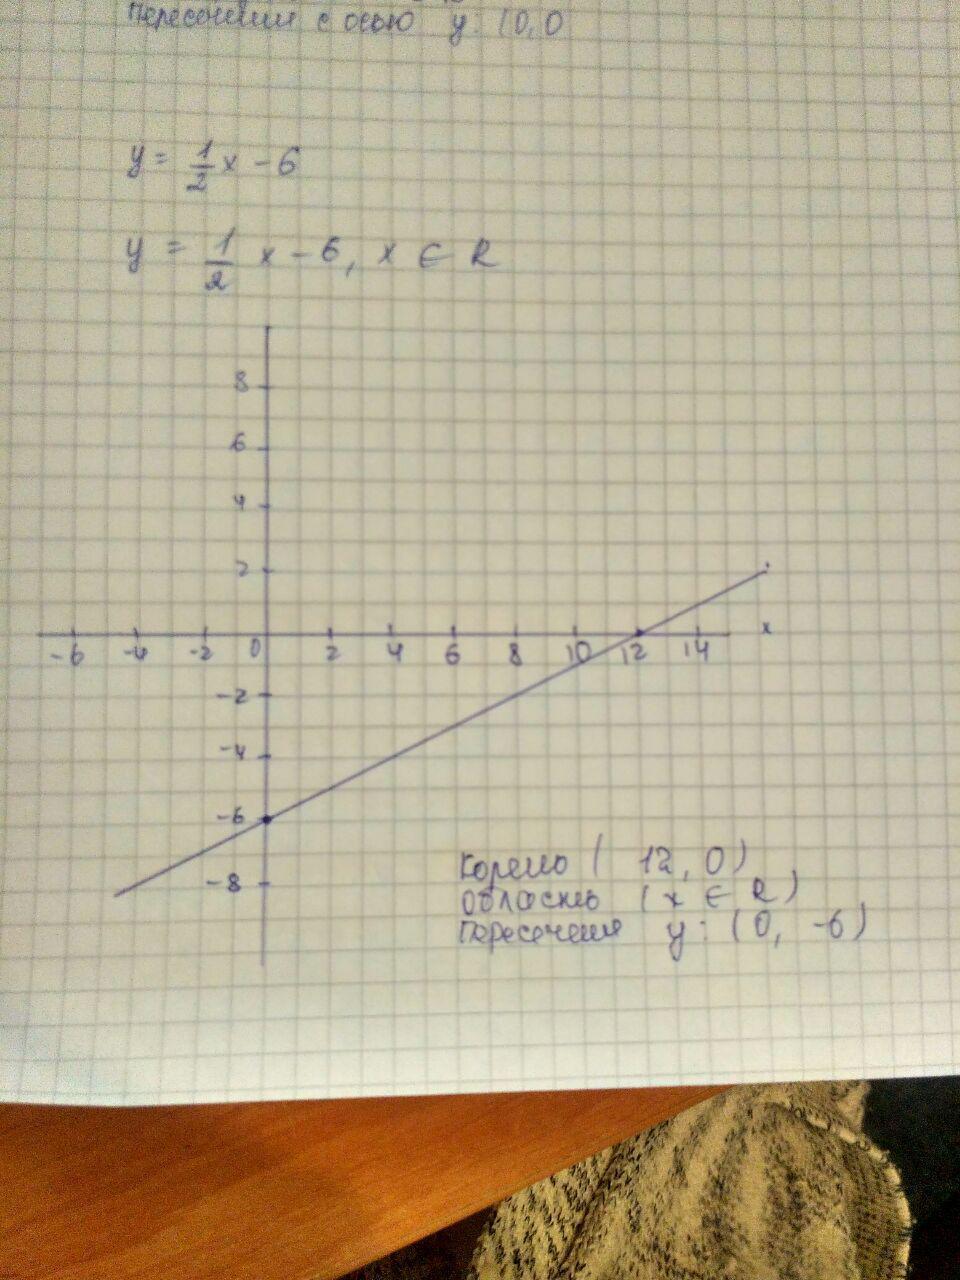 Пересечения с осью y: (0,0
y = 1/2 x - 6
y = 1/2 x - 6, x ∈ R
8
6
4
2
-6 -4 -2 0 2 4 6 8 10 12 14 x
-2
-4
-6
-8
Корень ( 12, 0)
Область (x ∈ R)
Пересечения y: (0, -6)